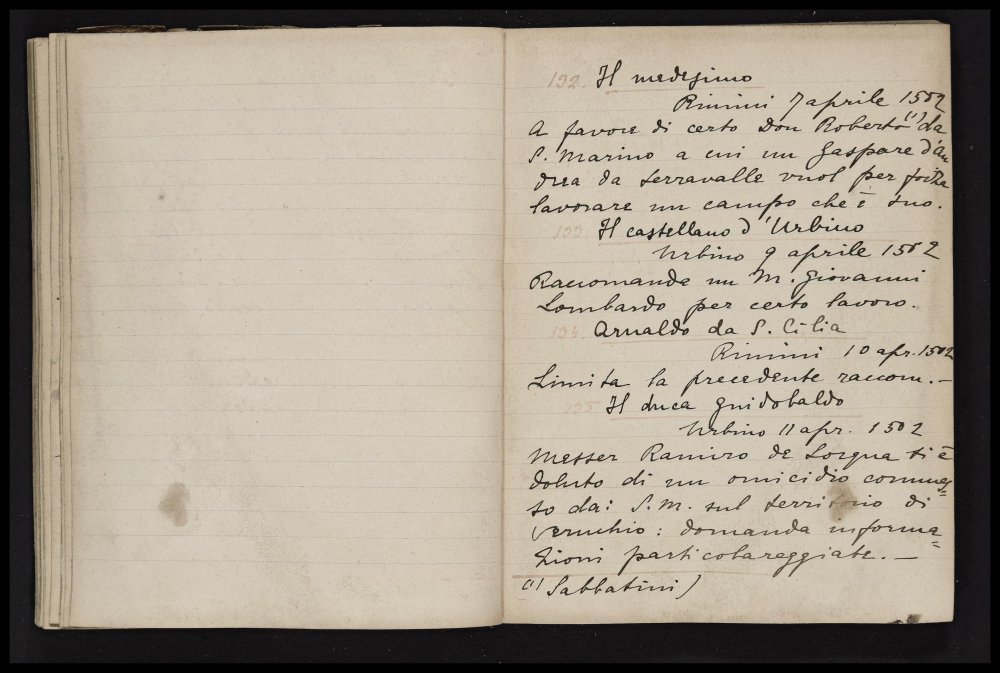 132. Il medesimo
Rimini 7 aprile 1502
A favore di certo Don Roberto (1) da
S. Marino a cui un Gaspare d'An
drea da Serravalle vuol per forza
lavorare un campo che è suo.
133. Il castellano d'Urbino
Urbino 9 aprile 1502
Raccomanda un M. Giovanni
Lombardo per certo lavoro.
134. Arnaldo da S. Cilia
Rimini 10 apr. 1502
Limita la precedente raccom. –
135. Il duca Guidobaldo
Urbino 11 apr. 1502
Messer Ramiro de Lorqua si è
doluto di un omicidio commes=
so dai S.M. sul territorio di
Verucchio: domanda informa=
zioni particolareggiate. –
(1) Sabbatini)